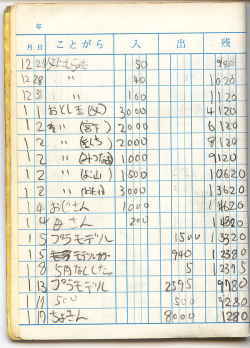 年
月 日 ことがら 入 出 残
12 27 50 980
12 28 〃 40 1020
12 31 〃 100 1120
1 1 おとし玉 3000 4120
1 2 〃 2000 6120
1 2 〃 2000 8120
1 2 〃 1000 9120
1 2 〃 1500 10620
1 2 〃 3000 13620
1 4 おじさん 1000 14620
1 4 さん 200 14820
1 5 プラモデル 1500 13320
1 5 モデル 940 12380
1 8 5円なし 5 12375
1 13 プラモデル 2395 9980
1 17 500 500 9280
1 17 ちょきん 8000 1280